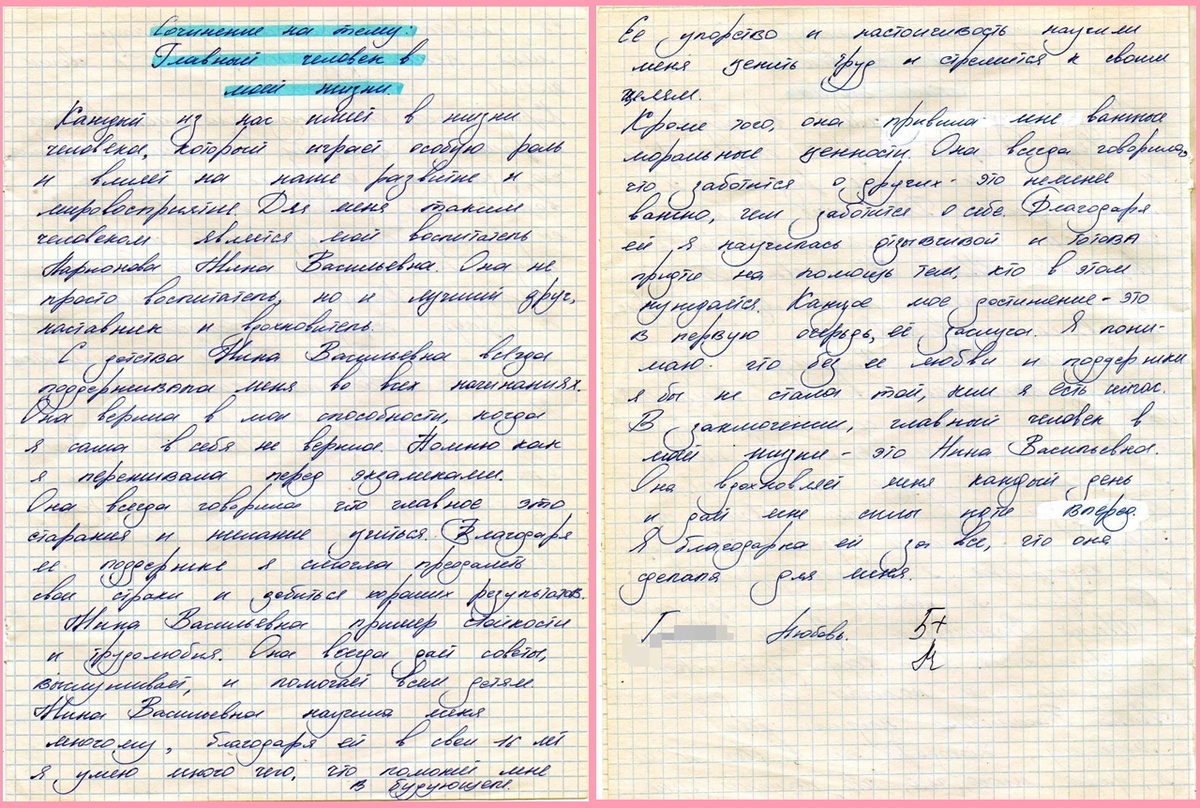 Сочинение на тему:
Главный человек в
моей жизни.
Каждый из нас имеет в жизни
человека, который играет особую роль
и влияет на наше развитие и
мировосприятие. Для меня таким
человеком является мой воспитатель
Ларионова Нина Васильевна. Она не
просто воспитатель, но и лучший друг,
наставник и вдохновитель
С детства Нина Васильевна всегда
поддерживала меня во всех начинаниях.
Она верила в мои способности, когда
я сама в себя не верила. Помню как
я переживала перед экзаменами.
Она всегда говорила что главное это
старания и желание учиться. Благодаря
ее поддержке я смогла преодолеть
свои страхи и добиться хороших результатов.
Нина Васильевна пример стойкости
и трудолюбия. Она всегда даёт советы,
выслушивает, и помогает всем детям.
Нина Васильевна научила меня
многому, благодаря ей в свои 16 лет
я умею много чего, что поможет мне
в будующем.
Её упорство и настоичивость научили
меня ценить труд и стремится к своим
целям.
Кроме того, она привила мне важные
моральные ценности. Она всегда говорила,
что заботится о других - это неменее
важно, чем заботится о себе. Благодаря
ей я научилась отзывчивой и готова
придти на помощь тем, кто в этом
нуждается. Каждое мое достижение - это
в первую очередь, её заслуга. Я пони-
маю. что без ее любви и поддержки
я бы не стала той, кем я есть сейчас.
В заключении, главный человек в
моей жизни - это Нина Васильевна.
Она вдохновляет меня каждый день
и даёт мне силы идти вперед.
Я благодарна ей за все, что она
сделала для меня.
Г Любовь. 5+